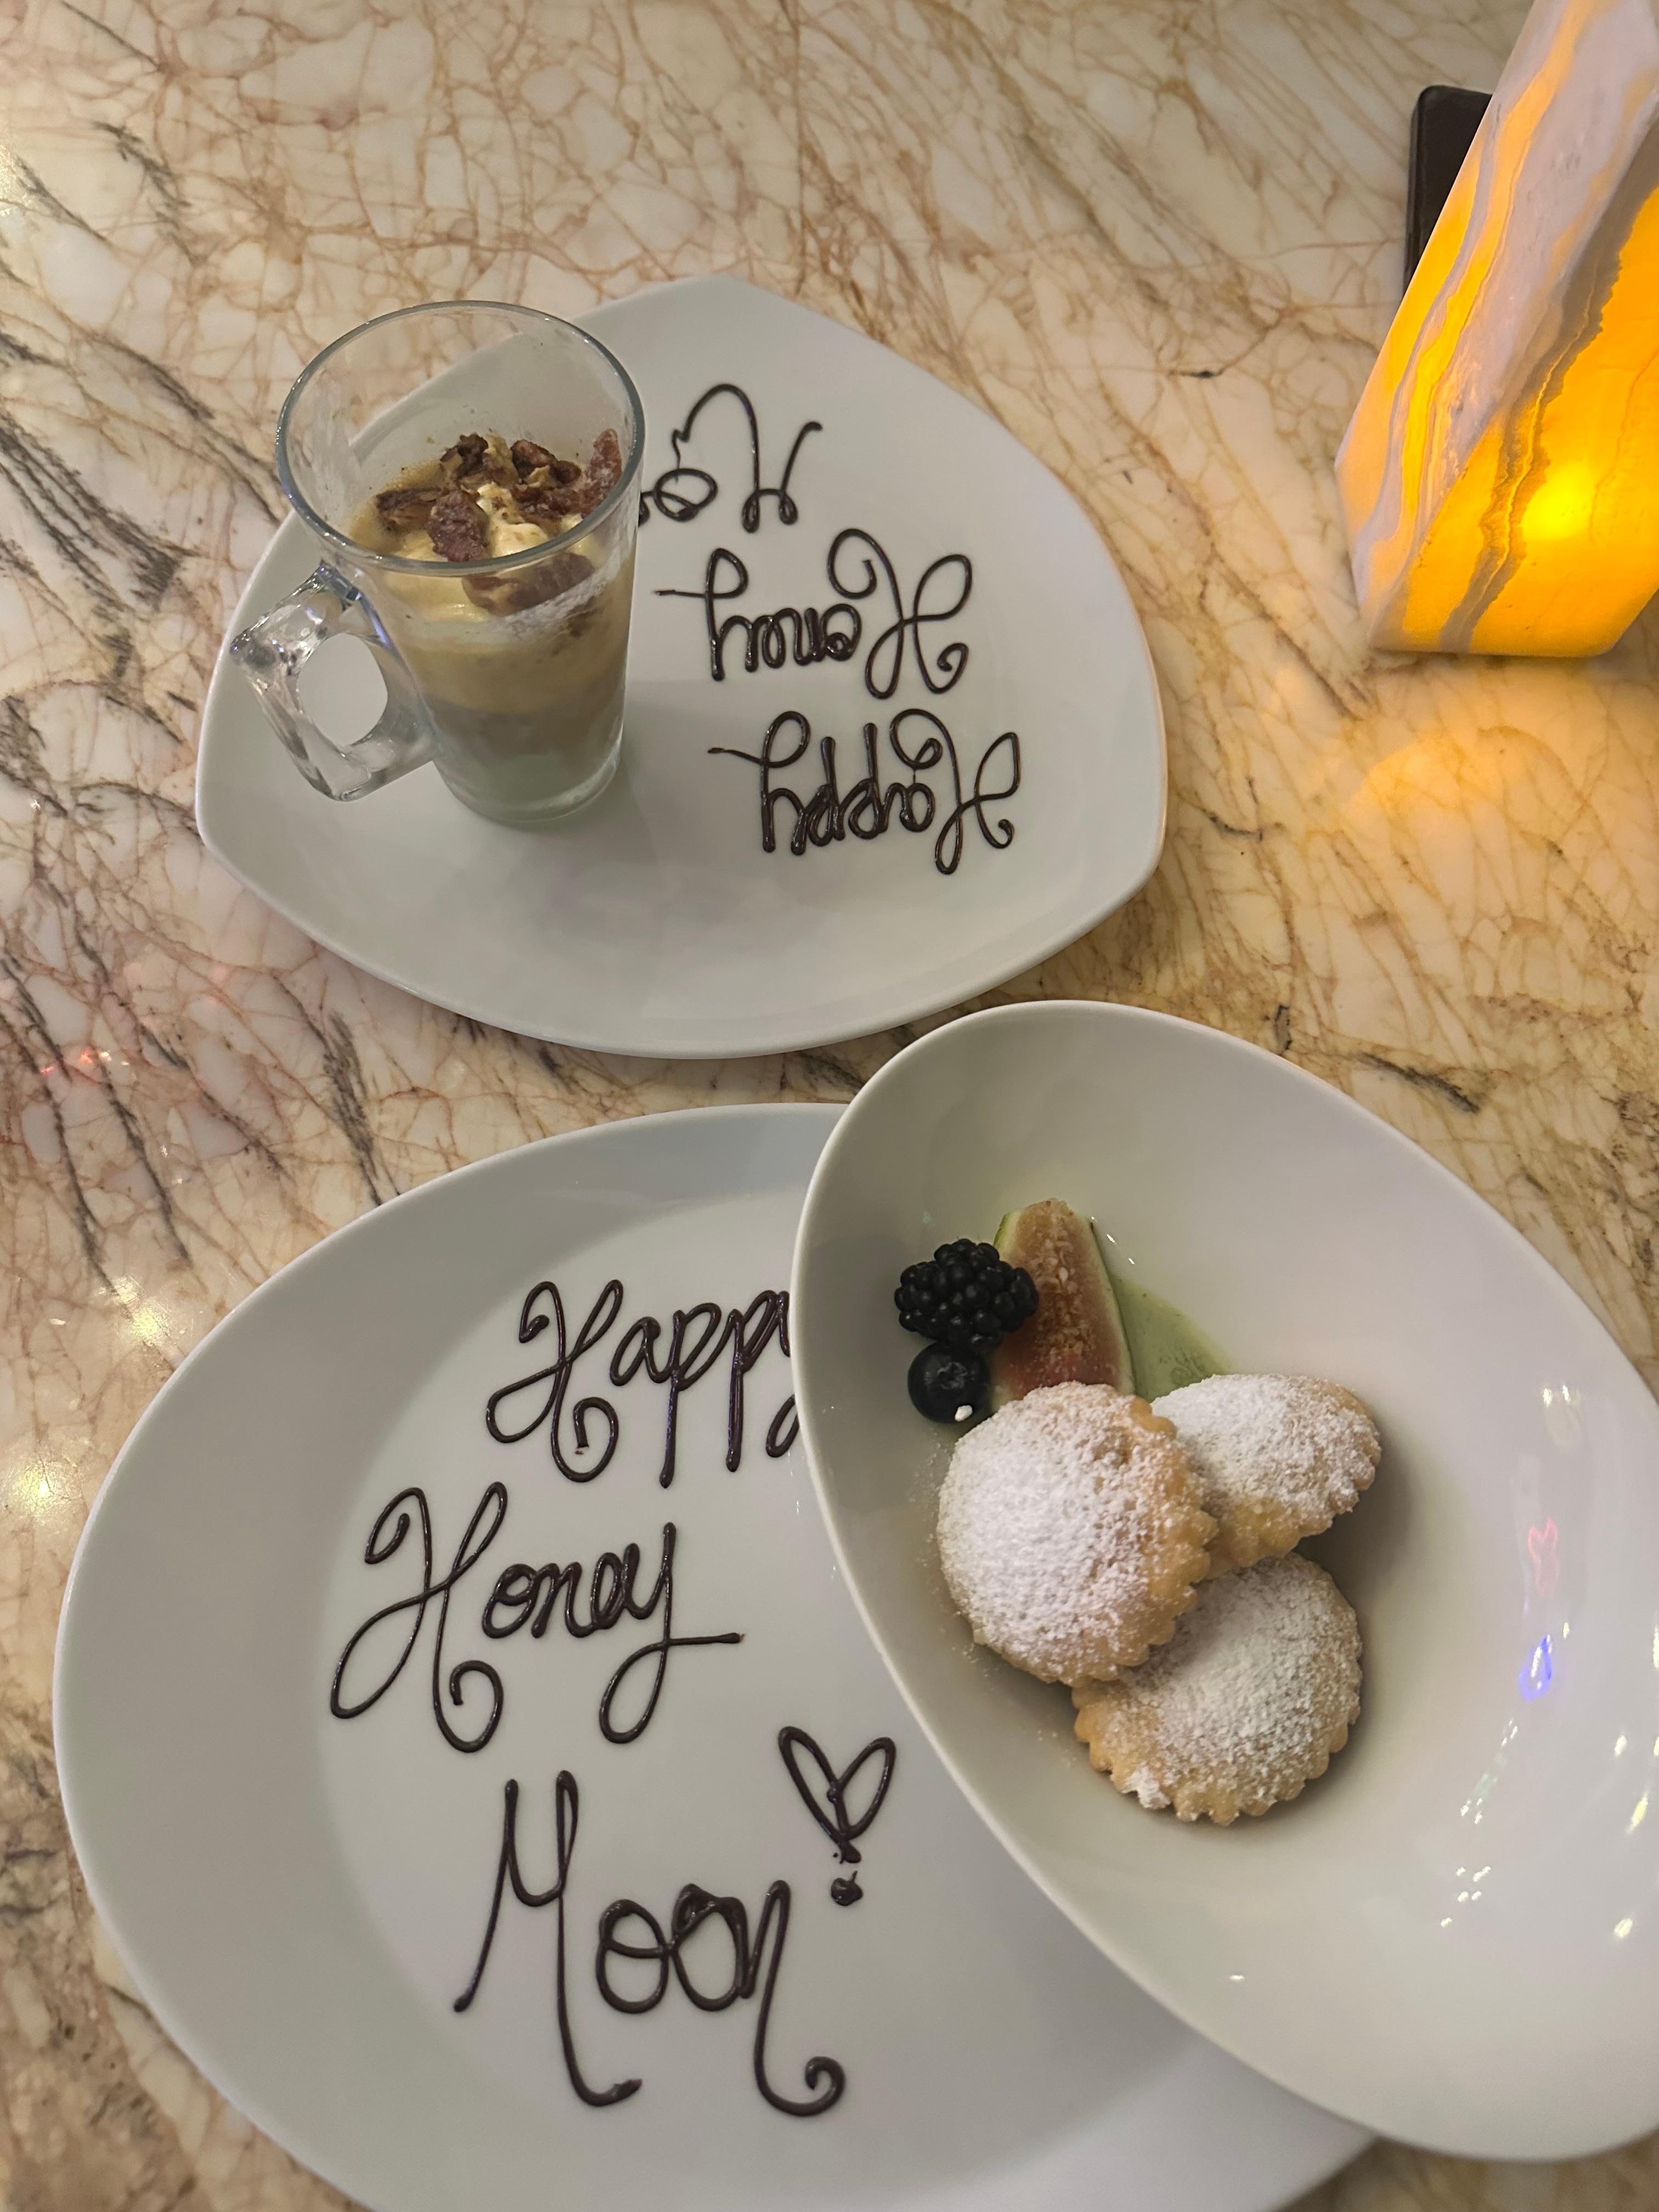 Happy
Honey
Mo
Happy
Honey
Moon!